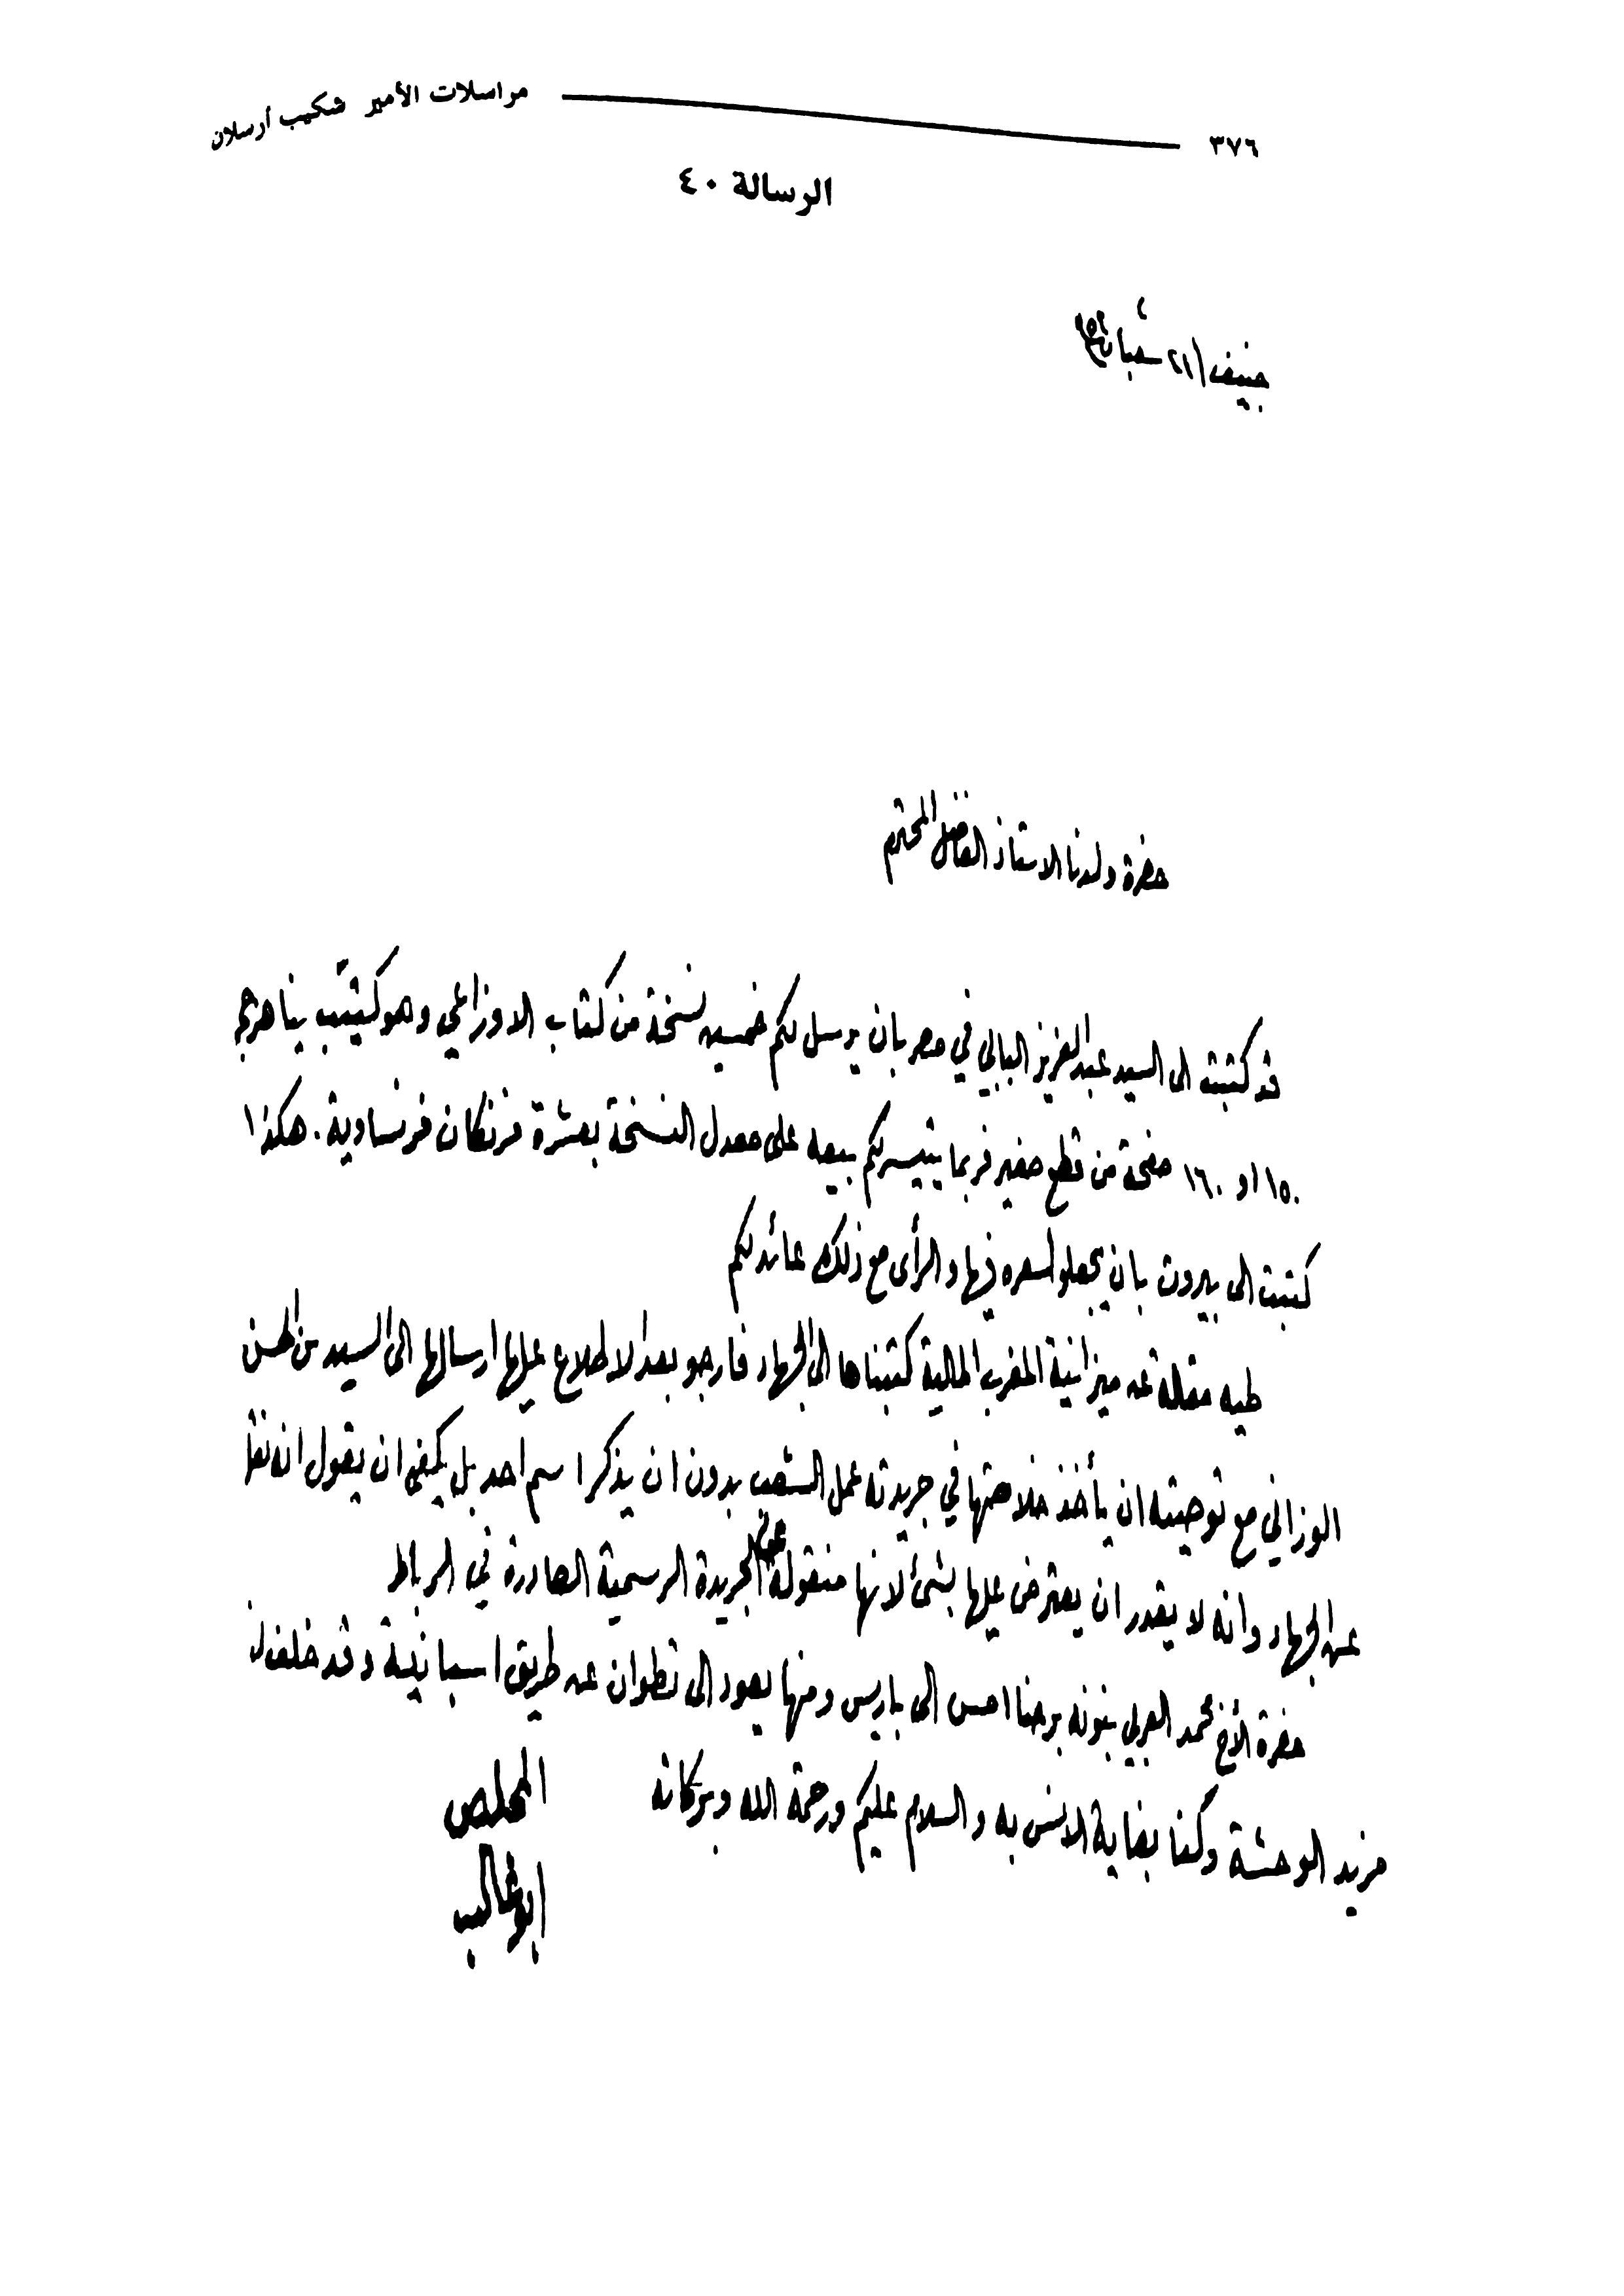 ٣٧٦ مراسلات الأمير شكيب أرسلان
الرسالة ٤٠
جنيف ٢١ شعبان
حضرة ولدنا الاستاذ الفاضل المحترم
قد كتبت الى السيد عبدالعزيز البابي في مصر بان يرسل لكم خمسين نسخة من كتاب الاوزاعي وهو كتيّب يناهز
١٥٠ او ١٦٠ صفحة من قطع صغير فربما يتيسر لكم بيعه على معدل النسخة بعشرة فرنكات فرنساوية . هكذا
كتبت الى بيروت بان يجعلوا سعره فيها والرأى مع ذلك عائد لكم
طيه مقالة عن ميزانية المغرب المالية كتبناها الى الجهاد فارجو بعد الاطلاع عليها ارسالها الى السيد الحسن
الوزاني مع توصيته ان يأخذ خلاصتها في جريدته عمل الشعب بدون ان يذكر اسم احد بل يكفي ان يقول انه نقل
عن الجهاد وانه لا يقدر ان يعترض عليها بشئ لانها منقولة عن الجريدة الرسمية الصادرة في الرباط
حضرة الأخ محمد العربي بنونه برحنا امس الى باريس ومنها يعود الى تطوان عن طريق اسبانية وقد خلف لنا
مزيد الوحشة وكنا بغاية الانس به والسلام عليكم ورحمة الله وبركاته
المخلص
ابو غالب